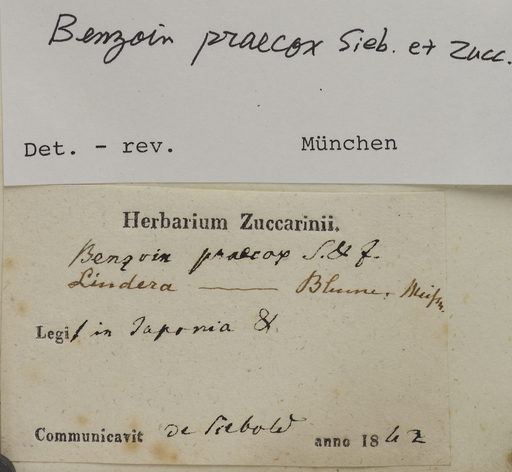 Benzoin praecox Sieb. et Zucc.
Det. - rev. München
Herbarium Zuccarinii.
Benzoin praecox S. & Z.
Lindera — Blume. Meißn.
Legit in Japonia &
Communicavit de Siebold anno 1842